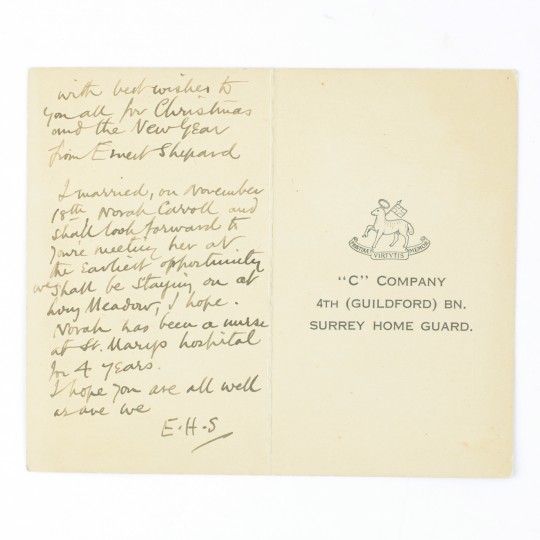 with best wishes to
you all for Christmas
and the New Year
from Ernest Shepard
I married, on November
18th Norah Carroll and
shall look forward to
you're meeting her at
the Earliest opportunity
we shall be staying on at
Long Meadow, I hope.
Norah has been a nurse
at St. Marys hospital
for 4 years.
I hope you are all well
as are we
E.H.S
VIRTUTIS
"C" COMPANY
4TH (GUILDFORD) BN.
SURREY HOME GUARD.